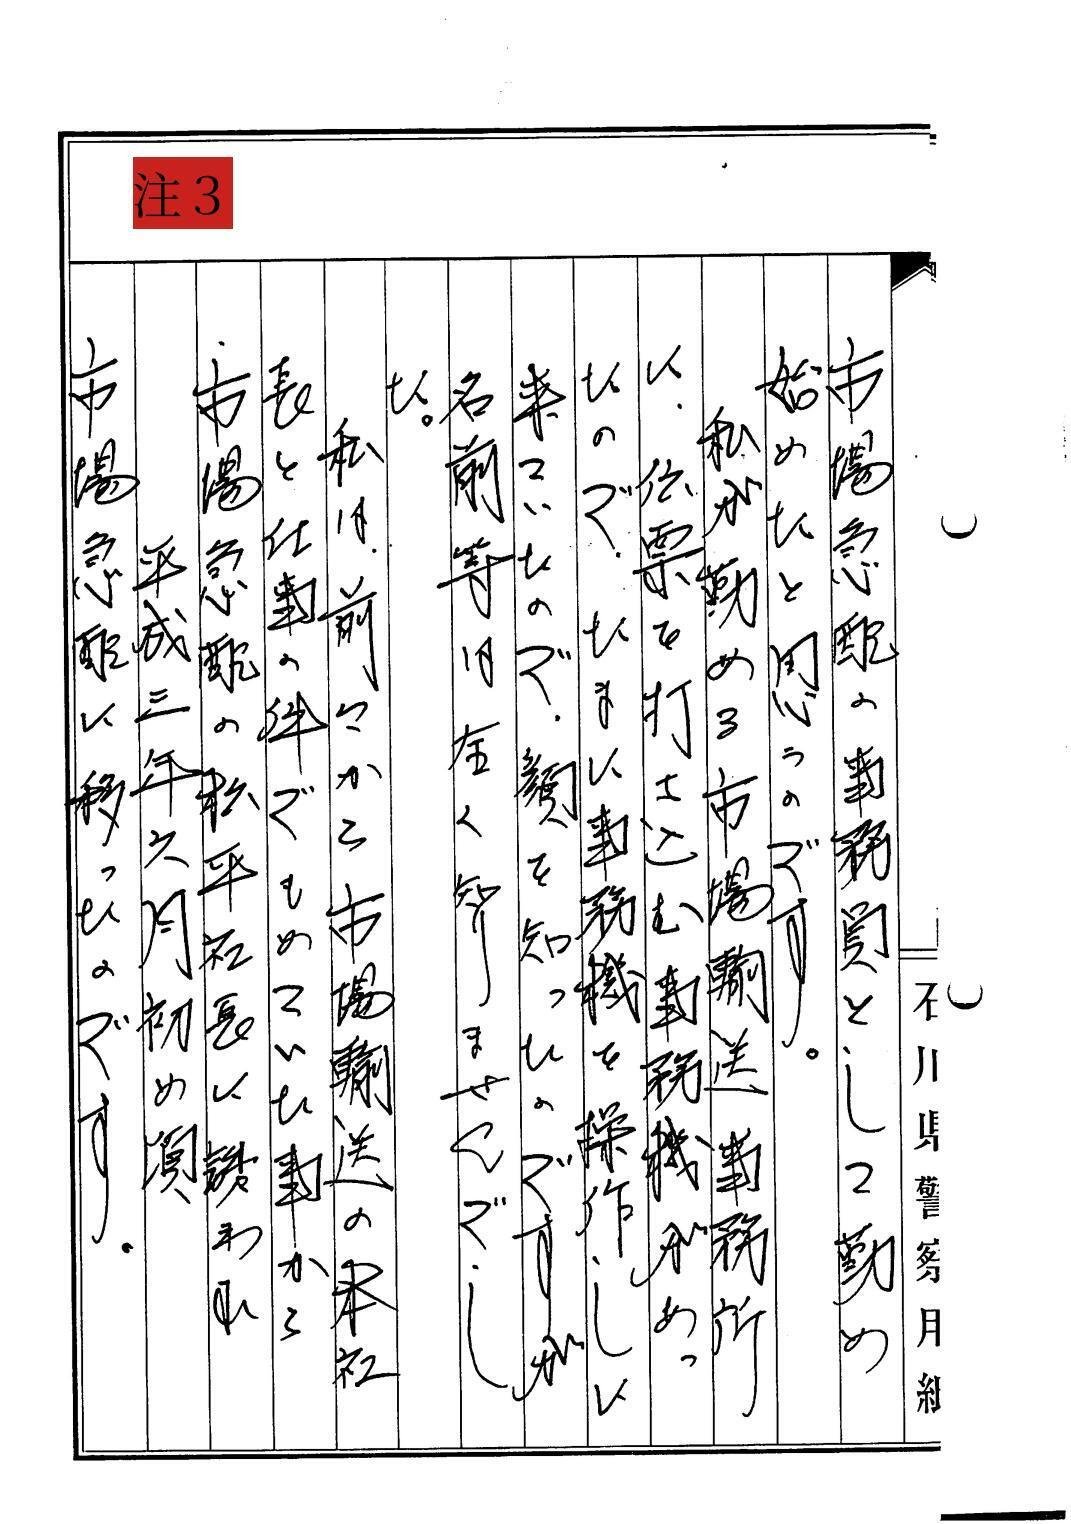 注３
市場急配の事務員として勤め
始めたと思うのです。
私が勤める市場輸送事務所
に、伝票を打ち込む事務機があっ
たので、たまに事務機を操作しに
来ていたので、顔を知ったのですが
名前等は全く知りませんでし
た。
私は、前々から市場輸送の本社
長と仕事の件でもめていた事から
市場急配の松平社長に誘われ
平成三年六月初め頃
市場急配に移ったのです。
石川県警察用紙